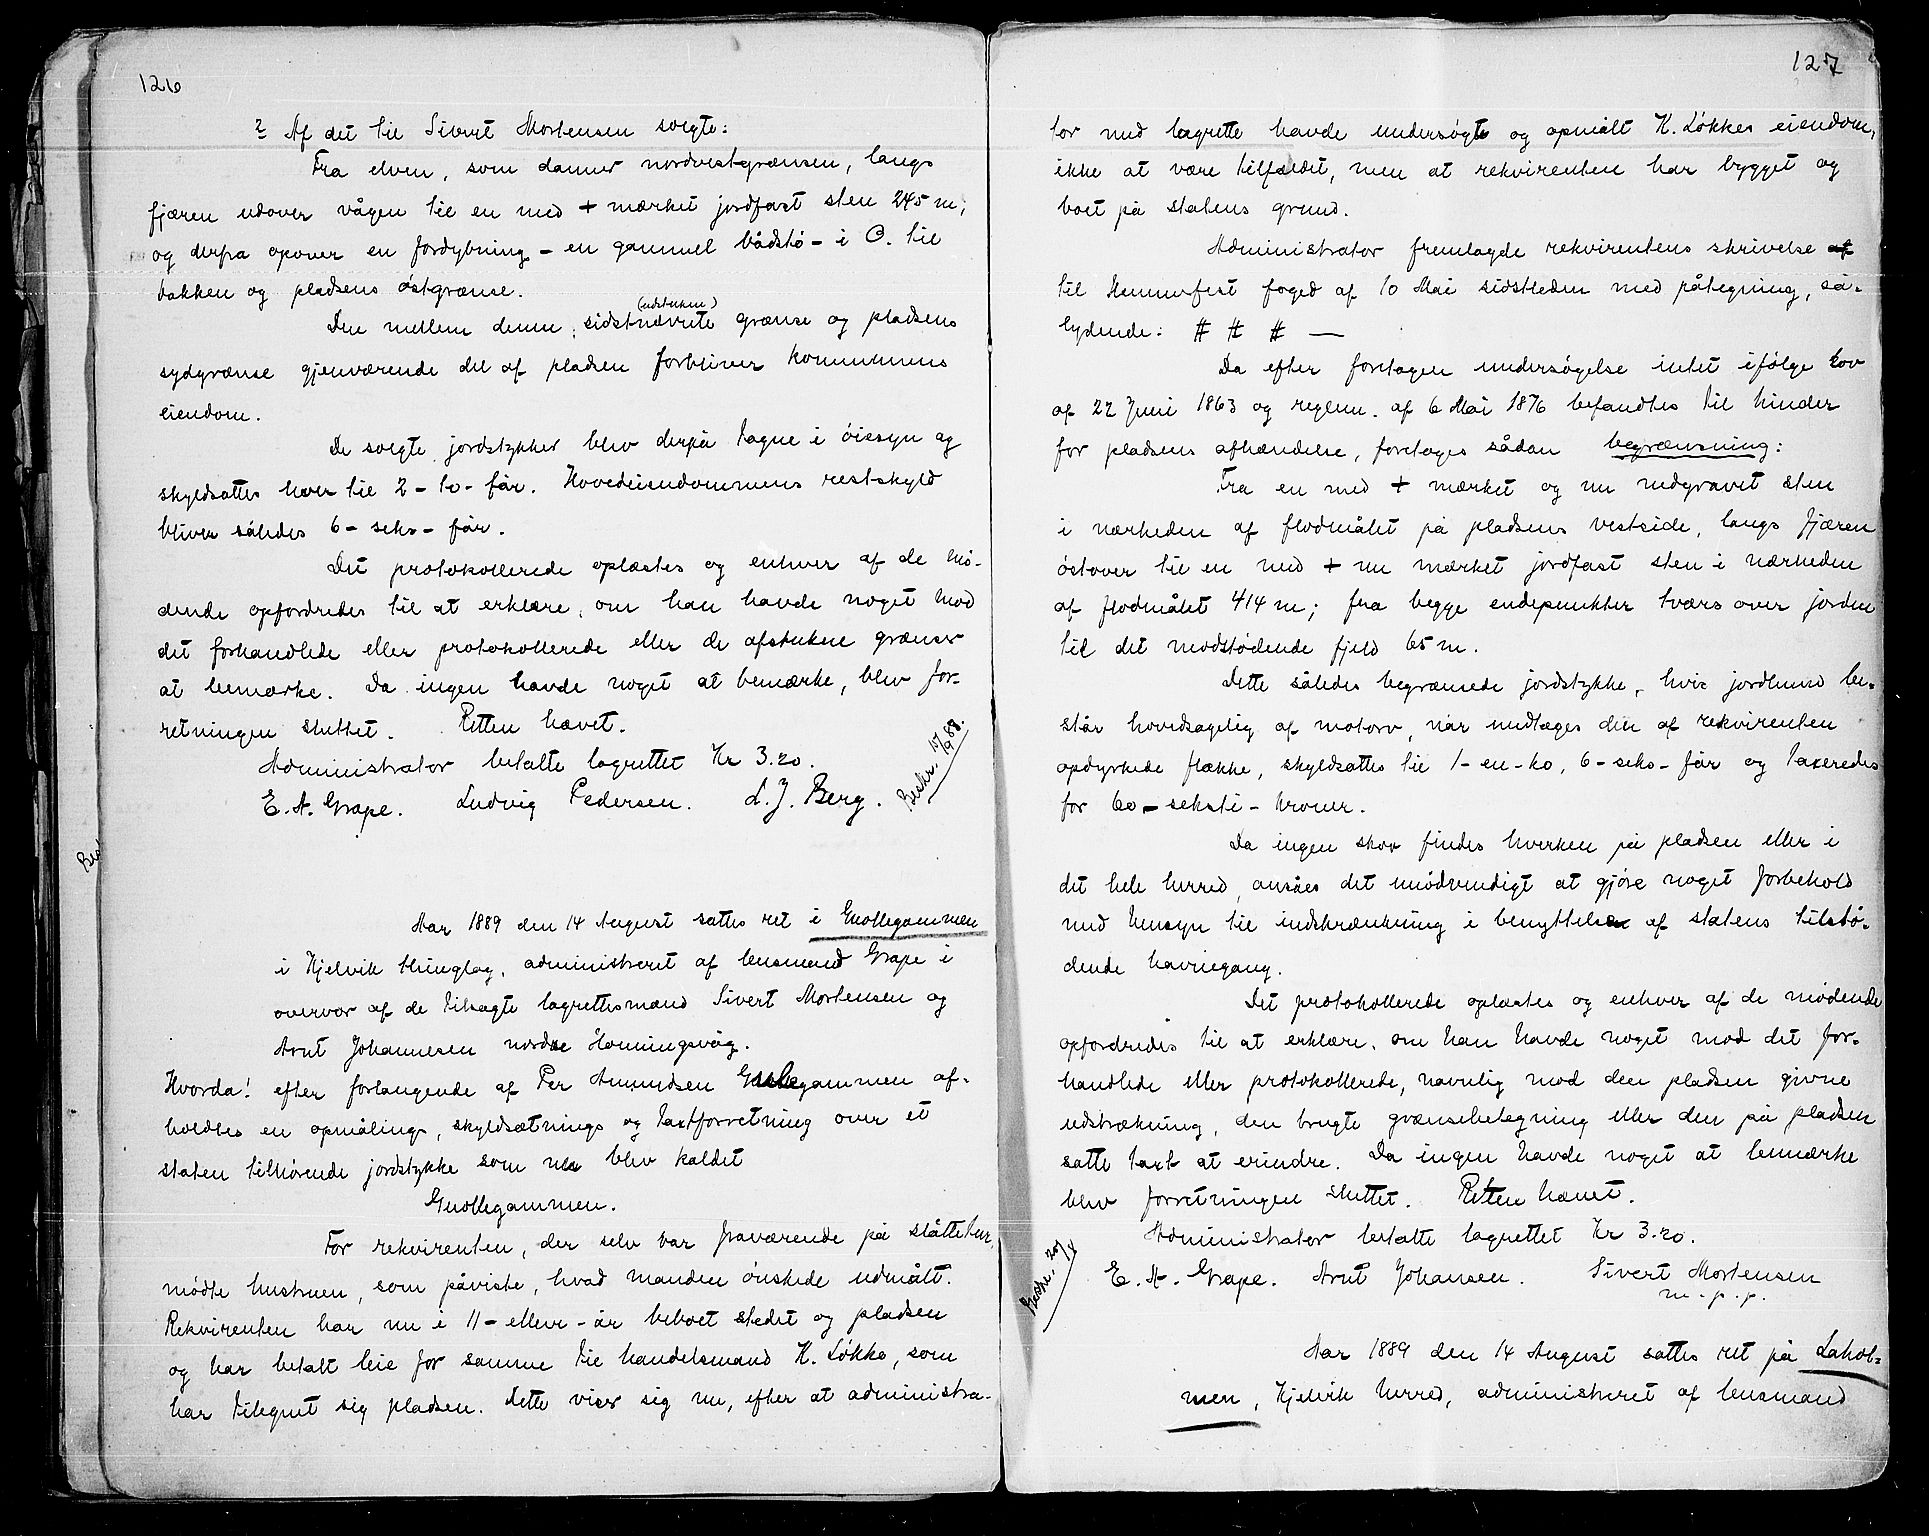 126
2 Af det til Sivert Mortensen solgte:
Fra elven, som danner nordvestgrænsen, langs
fjæren udover vågen til en med + mærket jordfast sten 245 m;
og derfra opover en fordybning - en gammel bådstø - i O. til
bakken og pladsens østgrænse.
(udstukne)
Den mellem denne, sidstnævnte grænse og pladsens
sydgrænse gjenværende del af pladsen forbliver kommunens
eiendom.
De solgte jordstykker blev derpå tagne i øiesyn og
skyldsattes hver til 2 - to - får. Hovedeiendommens restskyld
bliver således 6 - seks - får.
Det protokollerede oplæstes og enhver af de mø-
dende opfordredes til at erklære, om han havde noget mod
det forhandlede eller protokollerede eller de afstukne grænser
at bemærke. Da ingen havde noget at bemærke, blev for-
retningen sluttet. Retten hævet.
Administrator betalte lagrettet Kr 3.20.
E. A. Grape. Ludvig Pedersen. L. J. Berg.
Beskr. 15/9 88.
Aar 1889 den 14 August sattes ret i Gnollegammen
i Kjelvik thinglag, administreret af lensmand Grape i
overvær af de tilsagte lagrettesmænd Sivert Mortensen og
Arnt Johannesen nordre Honningsvåg.
Hvorda! efter forlangende af Per Amundsen Gnollegammen af-
holdtes en opmålings, skyldsætnings og taxtforretning over et
staten tilhørende jordstykke som nu blev kaldet
Gnollegammen.
For rekvirenten, der selv var fraværende på slåttetur,
mødte hustruen, som påviste, hvad manden ønskede udmålt.
Rekvirenten har nu i 11 - elleve - år beboet stedet og pladsen
og har betalt leie for samme til handelsmand K. Løkke, som
har tilegnet sig pladsen. Dette viser sig nu, efter at administra-
127
tor med lagrette havde undersøgt og opmålt K. Løkkes eiendom,
ikke at være tilfældet, men at rekvirenten har bygget og
boet på statens grund.
Administrator fremlagde rekvirentens skrivelse af
til Hammerfest foged af 10 Mai sidstleden med påtegning, så-
lydende: # # # —
Da efter foretagen undersøgelse intet ifølge Lov
af 22 Juni 1863 og reglem. af 6 Mai 1876 befandtes til hinder
for pladsens afhændelse, foretoges sådan begrænsning:
Fra en med + mærket og nu nedgravet sten
i nærheden af flodmålet på pladsens vestside, langs fjæren
østover til en med + nu mærket jordfast sten i nærheden
af flodmålet 414 m; fra begge endepunkter tværs over jorden
til det modstødende fjeld 65 m.
Dette således begrænsede jordstykke, hvis jordbund be-
står hovedsagelig af motorv, når undtages den af rekvirenten
opdyrkede flække, skyldsattes til 1 - en - ko, 6 - seks - får og taxeredes
for 60 - seksti - kroner.
Da ingen skov findes hverken på pladsen eller i
det hele herred, ansåes det unødvendigt at gjøre noget forbehold
med hensyn til indskrænkning i benyttelse af statens tilstø-
dende havnegang.
Det protokollerede oplæstes og enhver af de mødende
opfordredes til at erklære, om han havde noget mod det for-
handlede eller protokollerede, navnlig mod den pladsen givne
udstrækning, den brugte grænsebetegning eller den på pladsen
satte taxt at erindre. Da ingen havde noget at bemærke
blev forretningen sluttet. Retten hævet.
Administrator betalte lagrettet Kr 3.20.
E. A. Grape. Arnt Johansen. Sivert Mortensen
m. p. p.
Aar 1889 den 14 August sattes ret på Lahol-
men, Kjelvik herred, administreret af lensmand